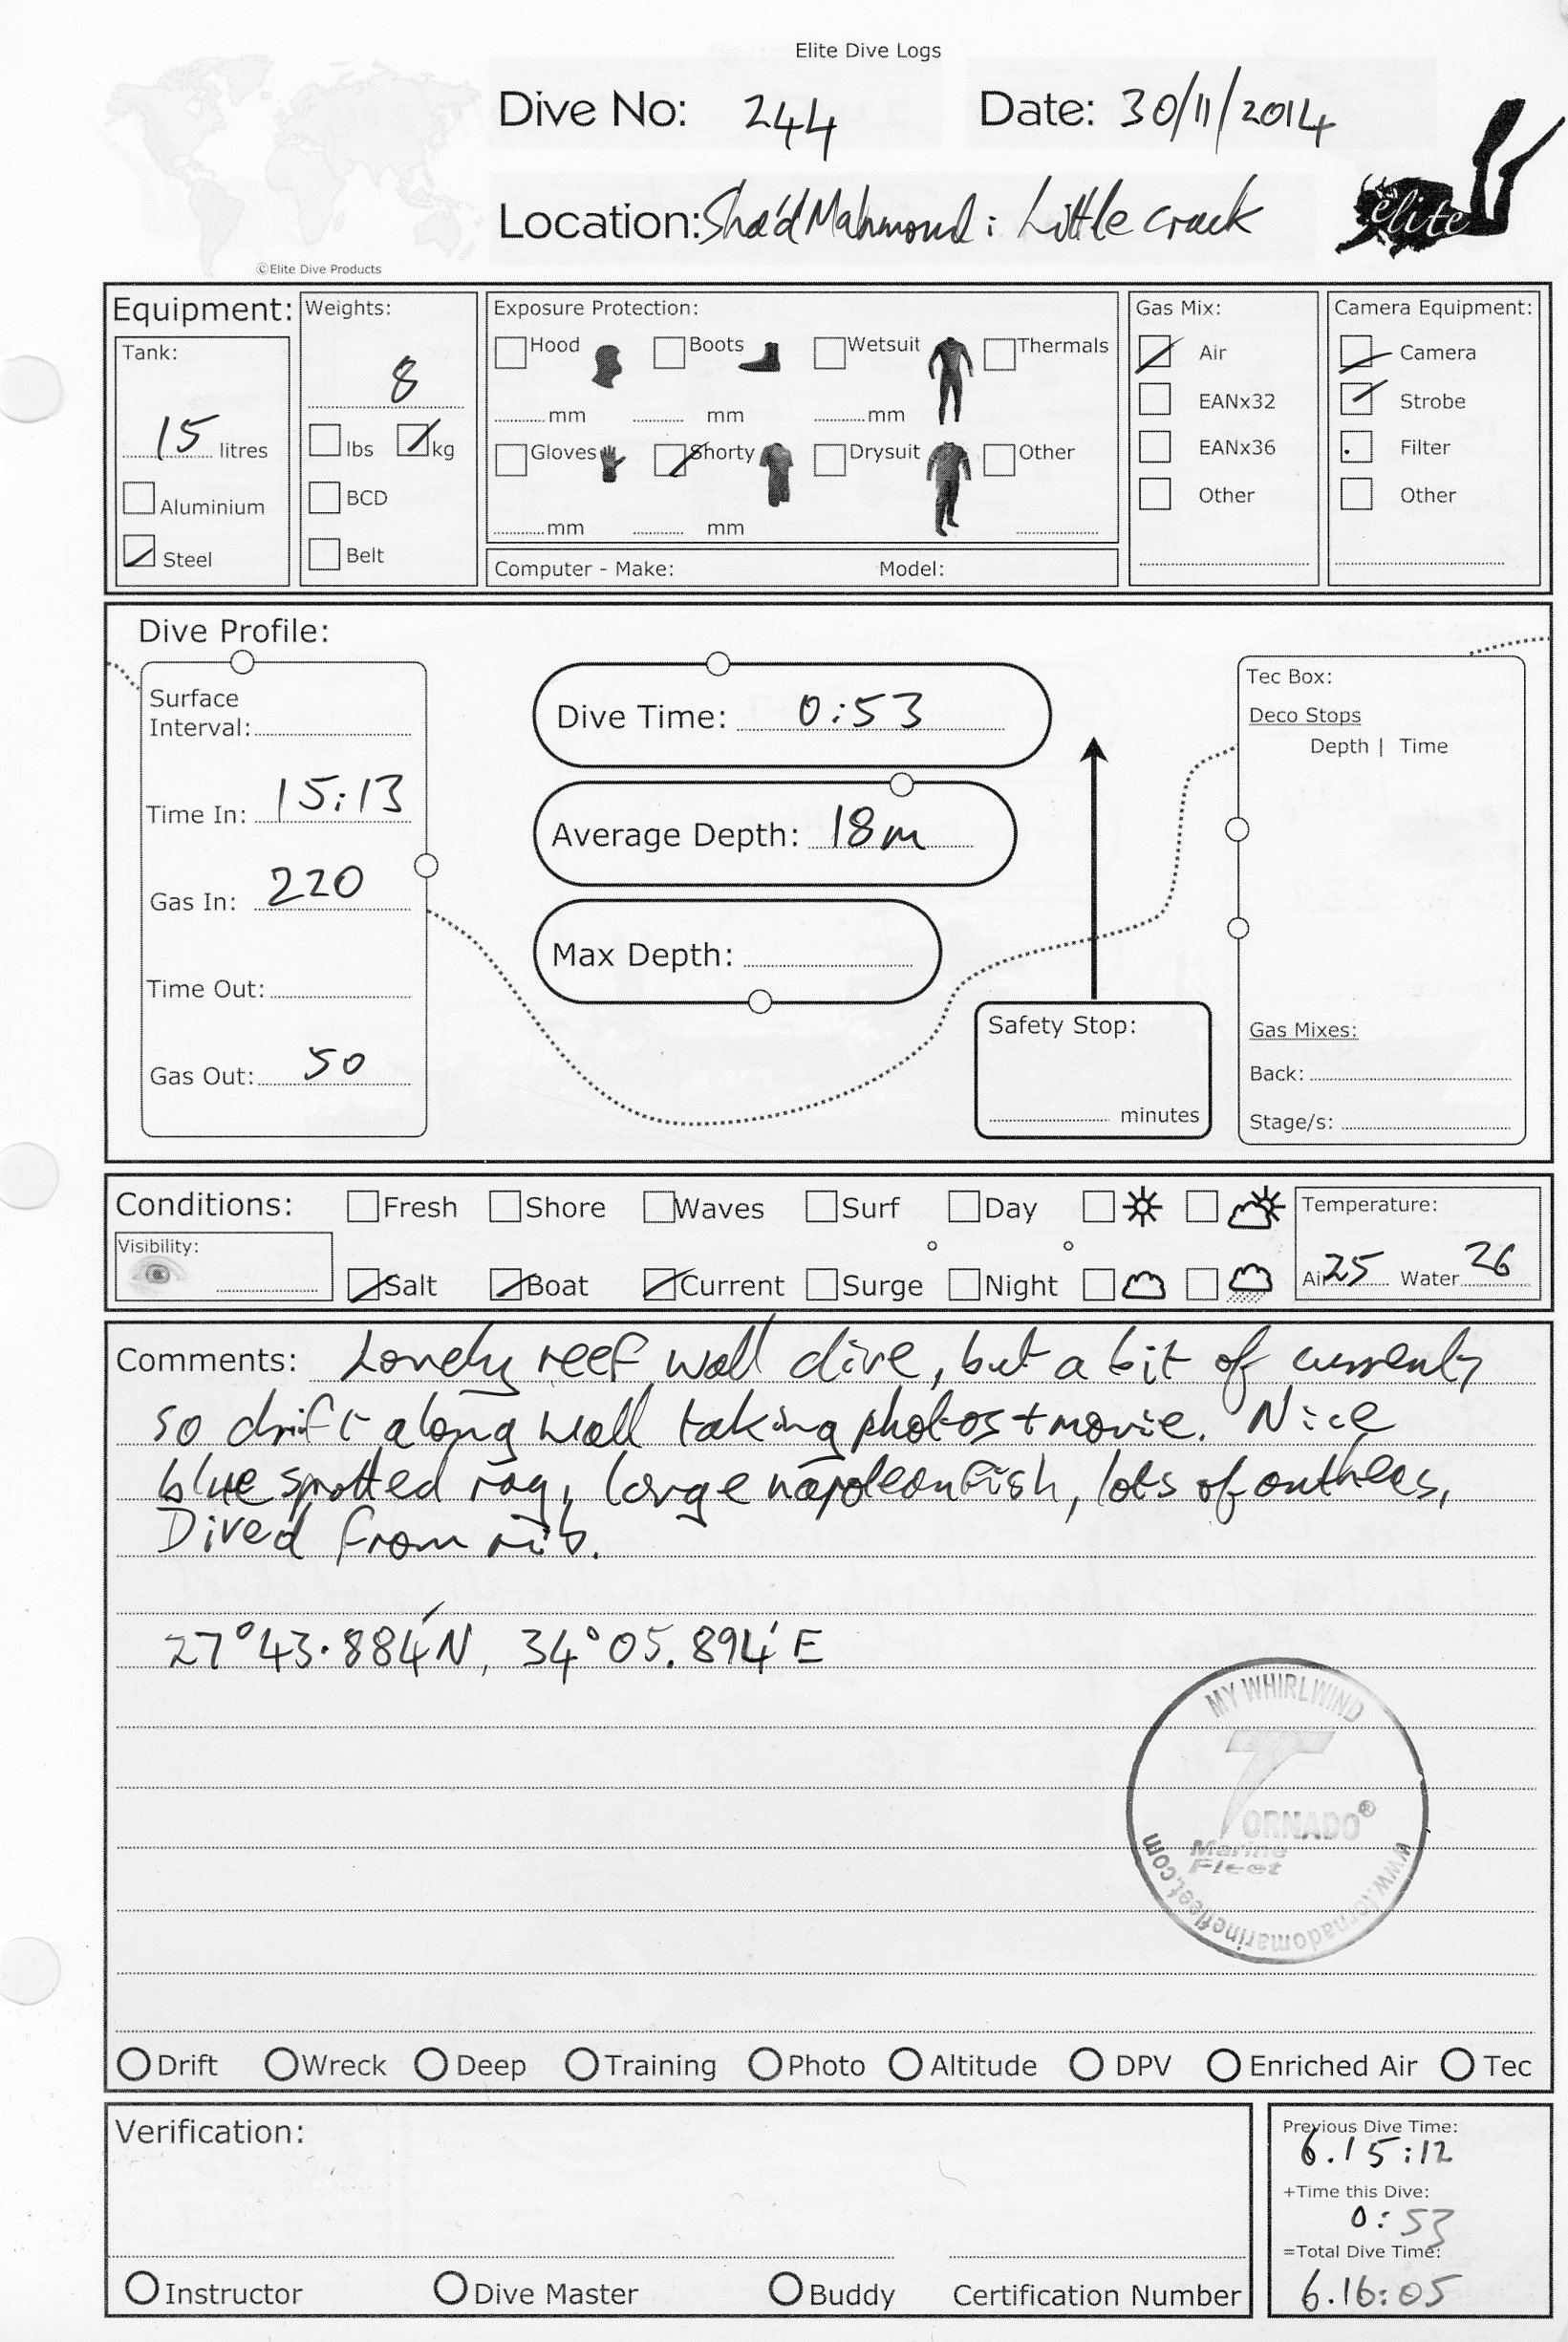 Elite Dive Logs
Dive No: 244 Date: 30/11/2014
Location: Sha'd Mahmoud: Little Crack
elite
©Elite Dive Products
Equipment:
Tank:
15 litres
Aluminium
Steel
Weights:
8
lbs kg
BCD
Belt
Exposure Protection:
Hood Boots Wetsuit Thermals
mm mm mm
Gloves Shorty Drysuit Other
mm mm
Computer - Make: Model:
Gas Mix:
Air
EANx32
EANx36
Other
Camera Equipment:
Camera
Strobe
Filter
Other
Dive Profile:
Surface
Interval:
Time In: 15:13
Gas In: 220
Time Out:
Gas Out: 50
Dive Time: 0:53
Average Depth: 18m
Max Depth:
Safety Stop:
minutes
Tec Box:
Deco Stops
Depth | Time
Gas Mixes:
Back:
Stage/s:
Conditions:
Visibility:
Fresh Shore Waves Surf Day
Salt Boat Current Surge Night
Temperature:
Air 25 Water 26
Comments: Lovely reef wall dive, but a bit of currenty
so drift along wall taking photos + movie. Nice
blue spotted ray, large napoleonfish, lots of anthias,
Dived from rib.
27°43.884'N, 34°05.894'E
MY WHIRLWIND
TORNADO®
Marine
Fleet
www.tornadomarinefleet.com
Drift Wreck Deep Training Photo Altitude DPV Enriched Air Tec
Verification:
Instructor Dive Master Buddy Certification Number
Previous Dive Time:
6.15:12
+Time this Dive:
0:53
=Total Dive Time:
6.16:05